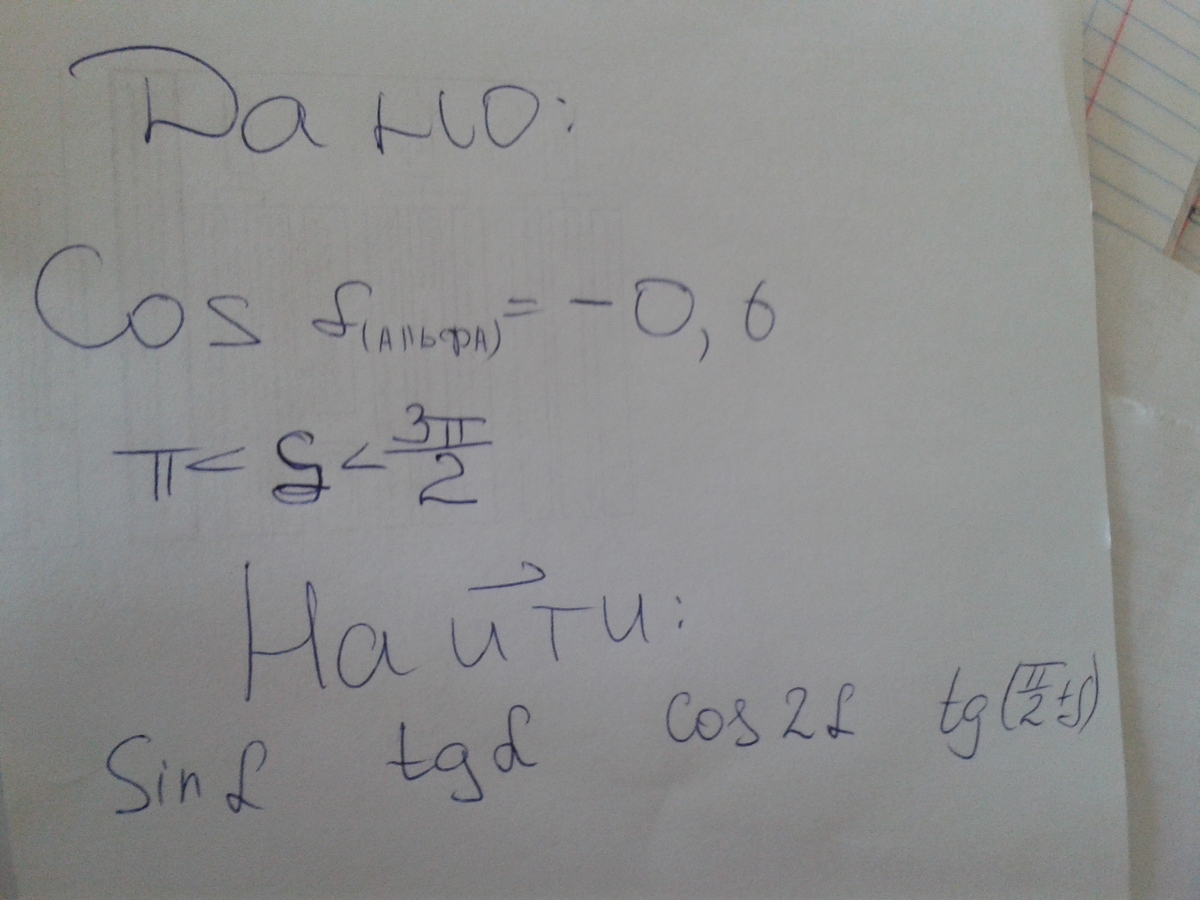 Дано:
Cos α(альфа) = -0,6
π < α < 3π/2
Найти:
Sin α tg α cos 2α tg(π/2 + α)